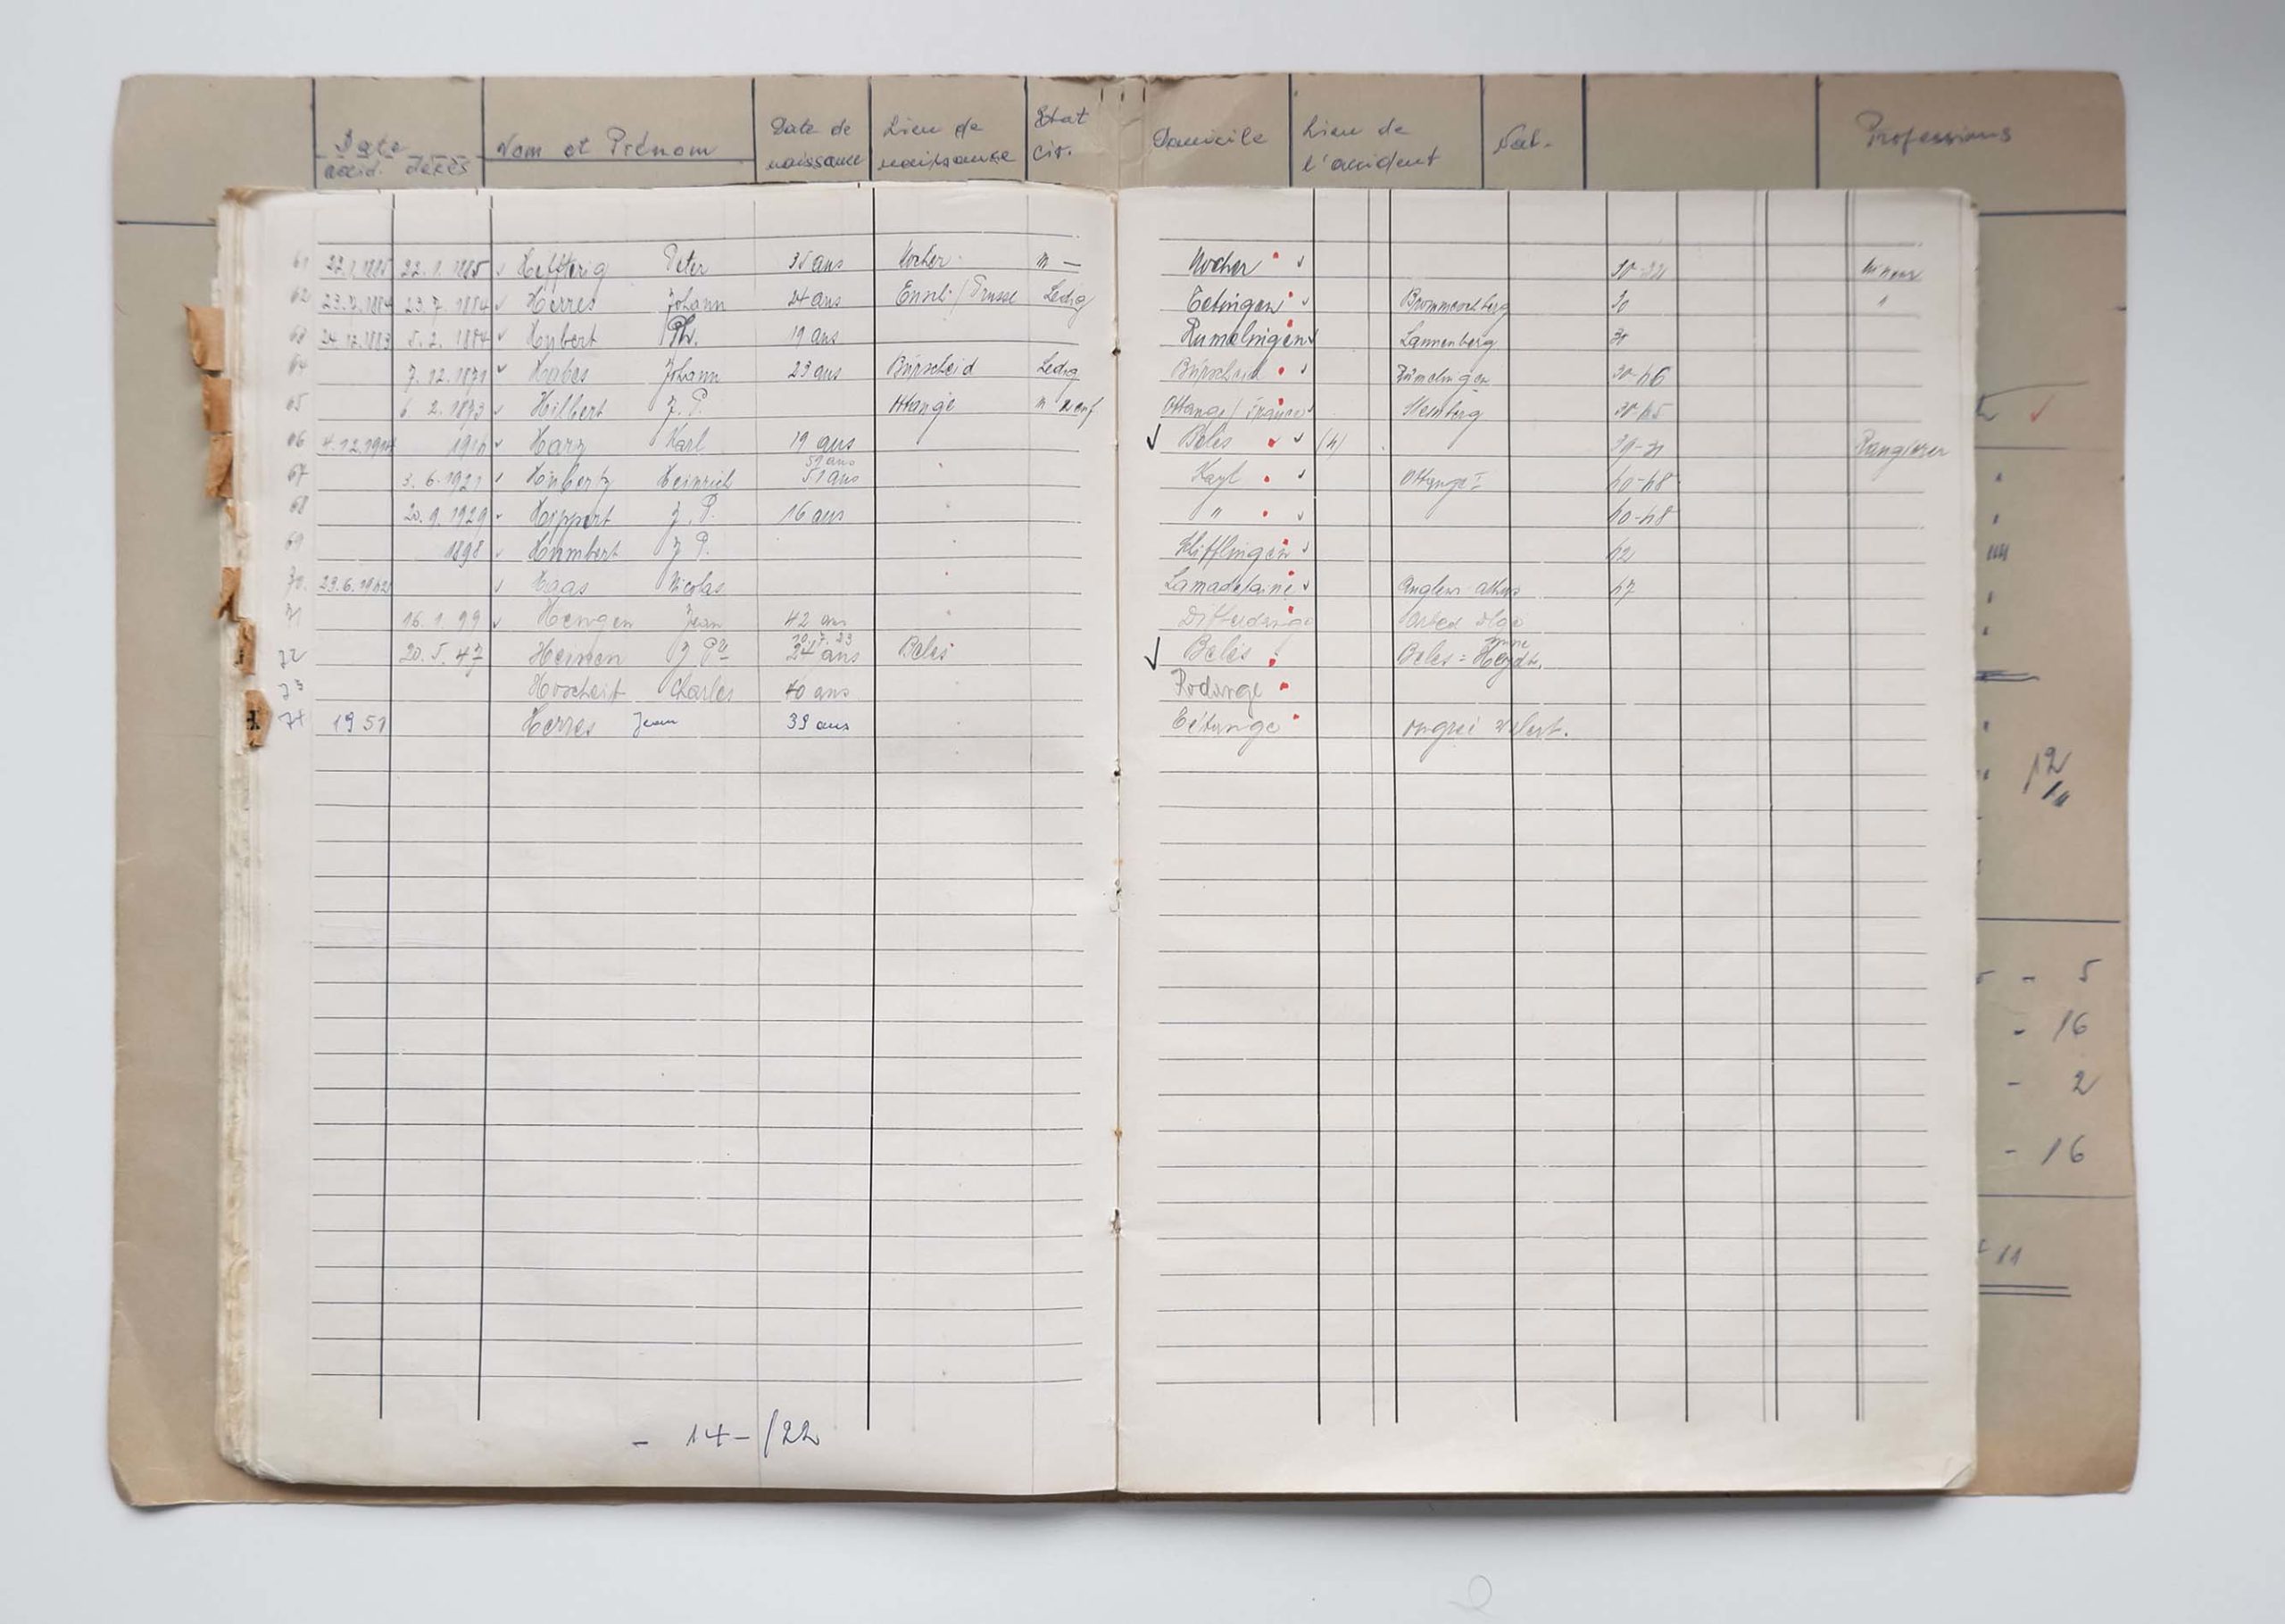 Date Nom et Prénom Date de Lieu de Etat Domicile Lieu de Nat. Professions
accid. décès naissance naissance civ. l'accident
61 22.1.1885 22.1.1885 Heffterig Peter 35 ans Nocher m — Nocher 30-32 mineur
62 23.7.1884 23.7.1884 Herres Johann 24 ans / Prusse Ledig Tetingen Brommeschberg 30 "
63 24.12.1883 5.2.1884 Hubert Ph. 19 ans Rumelingen Lannenberg
64 7.12.1871 Habes Johann 23 ans Bürscheid Ledig Bürscheid Rümelingen 30-46
65 6.2.1873 Hilbert J.P. Ottange m Ottange / France Steinberg 30-45
66 4.12.1914 Harz Karl 19 ans Beles (4) 39-31 Rangierer
67 3.6.1921 Hubertz Heinrich 51 ans 51 ans Kayl Ottange I 40-48
68 20.9.1929 Hippert J.P. 16 ans " 40-48
69 1898 Humbert J.P. 42
70. 23.6.1942 Haas Nicolas Lamadelaine Angleur Athus 47
71 16.1.99 Hengen Jean 42 ans Differdange Arbed
72 20.5.47 Heinen J Pre 24 ans Beles Beles Beles =
73 Hoscheit Charles 40 ans Rodange
74 1951 Herres Jean 39 ans Tétange
- 14 - /22
12
5
- 16
- 2
- 16
11